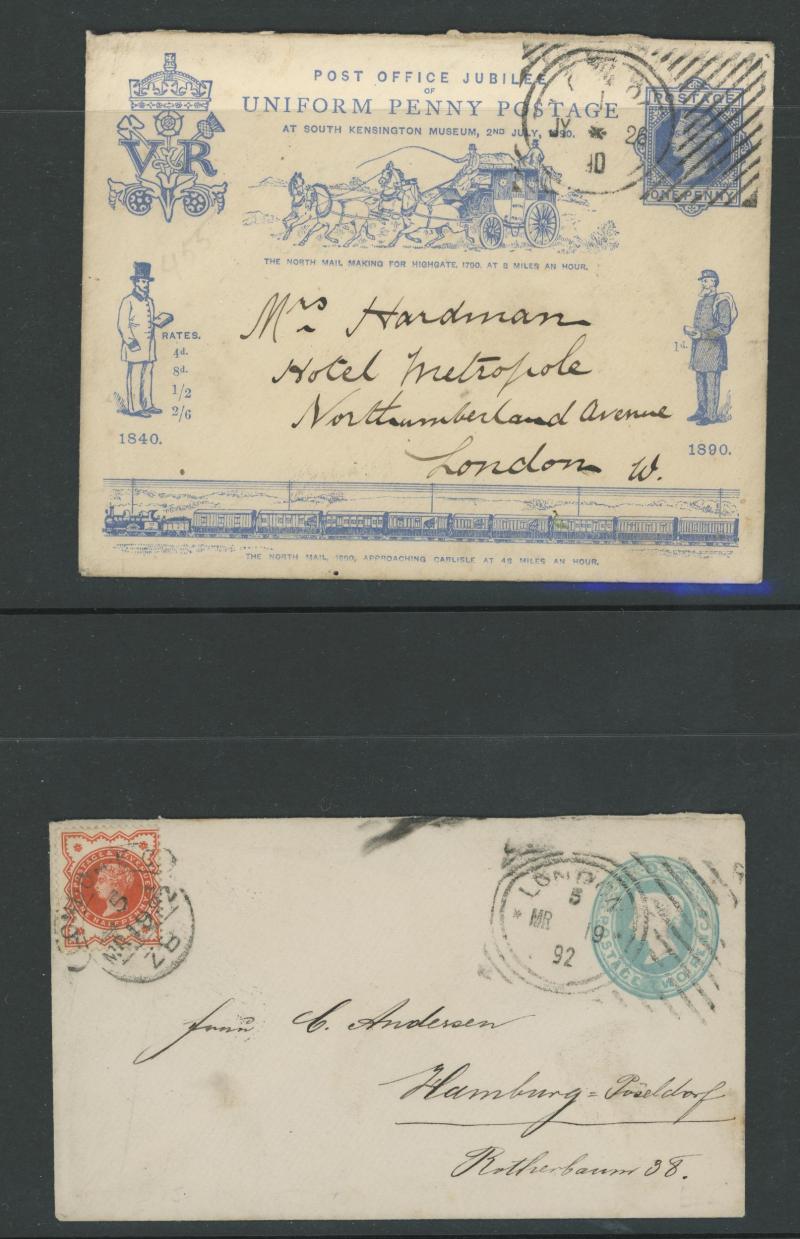 POST OFFICE JUBILEE
OF
UNIFORM PENNY POSTAGE
AT SOUTH KENSINGTON MUSEUM, 2ND JULY, 1890.
VR
JY 26
90
POSTAGE
ONE PENNY
THE NORTH MAIL MAKING FOR HIGHGATE, 1790, AT 8 MILES AN HOUR.
RATES.
4d.
8d.
1/2
2/6
1840.
1d.
1890.
Mrs Hardman
Hotel Metropole
Northumberland Avenue
London W.
THE NORTH MAIL, 1890, APPROACHING CARLISLE AT 48 MILES AN HOUR.
LONDON
5
MR 19
92
POSTAGE
C. Andersen
Hamburg=Pöseldorf
Rotherbaum 38.